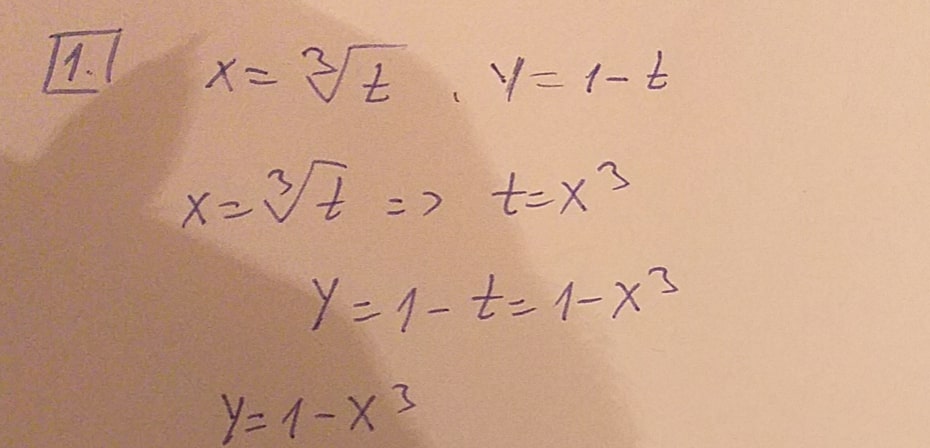 1. x = ∛t , y = 1 - t
x = ∛t => t = x³
y = 1 - t = 1 - x³
y = 1 - x³